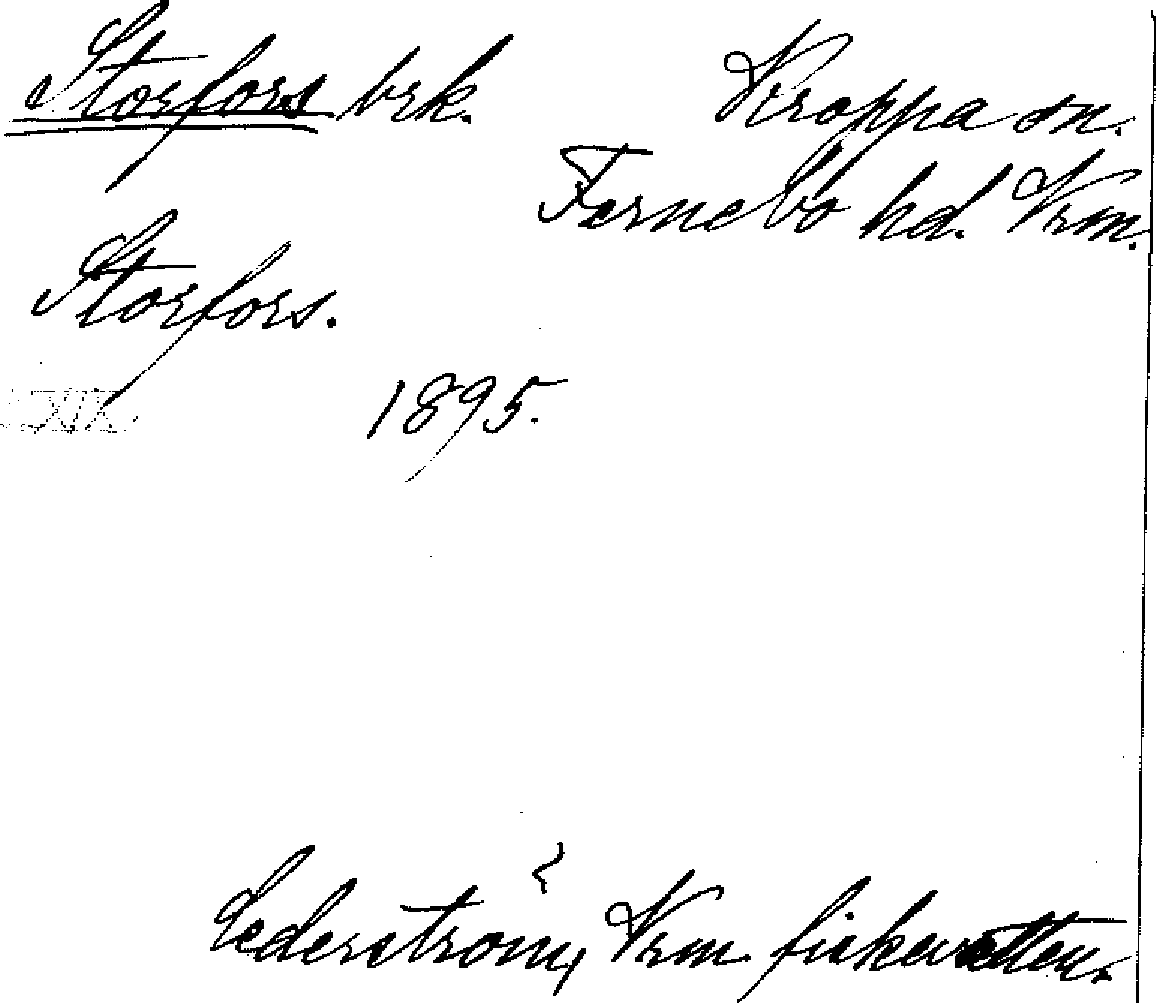 Storfors brk. Kroppa sn.
Fernebo hd. Vrm.
Storfors.
XIX.
1895.
Cederström, Vrm. fiskevatten.